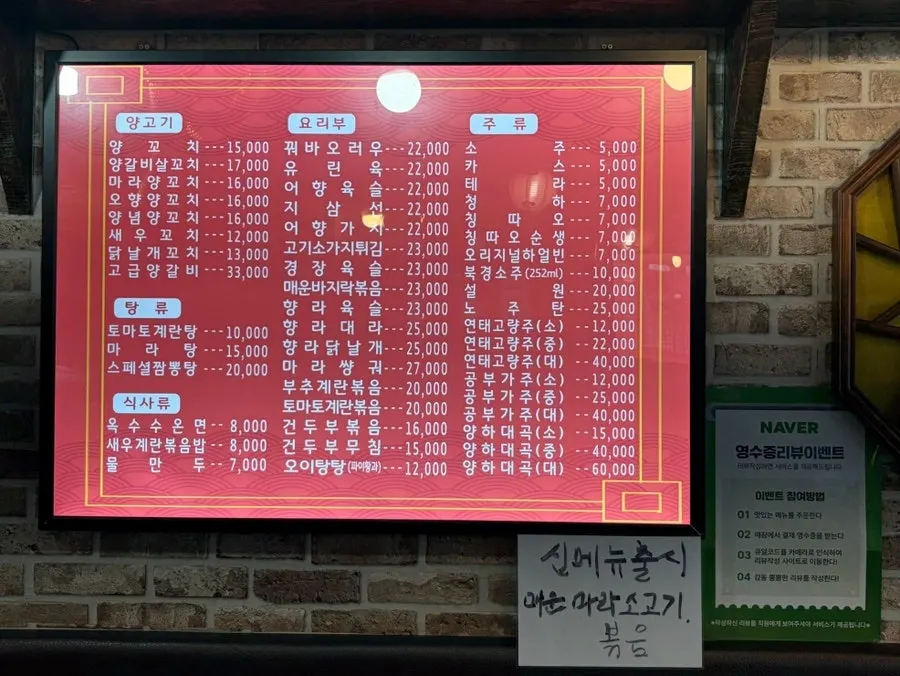 양고기
양 꼬 치 --- 15,000
양갈비살꼬치 --- 17,000
마라양꼬치 --- 16,000
오향양꼬치 --- 16,000
양념양꼬치 --- 16,000
새우꼬치 --- 12,000
닭날개꼬치 --- 13,000
고급양갈비 --- 33,000
탕 류
토마토계란탕 --- 10,000
마 라 탕 --- 15,000
스페셜짬뽕탕 --- 20,000
식사류
옥수수온면 -- 8,000
새우계란볶음밥 -- 8,000
물 만 두 -- 7,000
요리부
꿔바오러우 --- 22,000
유 린 육 --- 22,000
어 향 육 슬 --- 22,000
지 삼 선 --- 22,000
어 향 가 지 --- 22,000
고기소가지튀김 --- 23,000
경 장 육 슬 --- 23,000
매운바지락볶음 --- 23,000
향 라 육 슬 --- 23,000
향 라 대 라 --- 25,000
향라닭날개 --- 25,000
마 라 썅 궈 --- 27,000
부추계란볶음 --- 20,000
토마토계란볶음 --- 20,000
건두부볶음 --- 16,000
건두부무침 --- 15,000
오이탕탕(파이황과) --- 12,000
주 류
소 주 -- 5,000
카 스 -- 5,000
테 라 -- 5,000
청 하 -- 7,000
칭 따 오 -- 7,000
칭따오순생 -- 7,000
오리지널하얼빈 -- 7,000
북경소주(252ml) -- 10,000
설 원 -- 20,000
노 주 탄 -- 25,000
연태고량주(소) -- 12,000
연태고량주(중) -- 22,000
연태고량주(대) -- 40,000
공부가주(소) -- 12,000
공부가주(중) -- 25,000
공부가주(대) -- 40,000
양하대곡(소) -- 15,000
양하대곡(중) -- 40,000
양하대곡(대) -- 60,000
신메뉴출시
매운 마라소고기.
볶음
NAVER
영수증리뷰이벤트
리뷰작성하면 서비스를 제공해드립니다
이벤트 참여방법
01 맛있는 메뉴를 주문한다
02 매장에서 결제 영수증을 받는다
03 큐알코드를 카메라로 인식하여
리뷰작성 사이트로 이동한다!
04 감동 훌륭한 리뷰를 작성한다!
*작성하신 리뷰를 직원에게 보여주셔야 서비스가 제공됩니다*